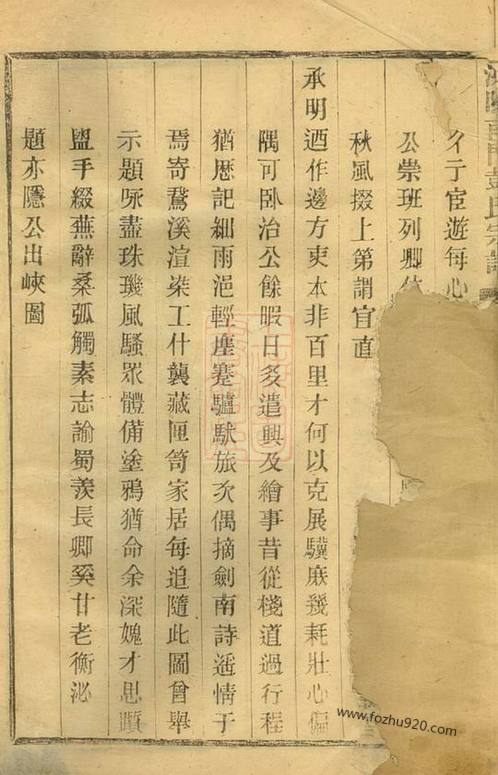 彭氏宗譜
公崇班列卿
秋風掇上第謂宜直
承明迺作邊方吏本非百里才何以克展驥庶幾耗壯心偏
隅可臥治公餘暇日多遣興及繪事昔從棧道過行程
猶歷記細雨浥輕塵蹇驢馱旅次偶摘劍南詩遥情于
焉寄鵞溪渲染工什襲藏匣笥家居每追隨此圖曾舉
示題咏盡珠璣風騷眾體備塗鴉猶命余深媿才思躓
盥手綴蕪辭桑弧觸素志諭蜀羨長卿奚甘老衡泌
題亦隱公出峽圖
www.fozhu920.com